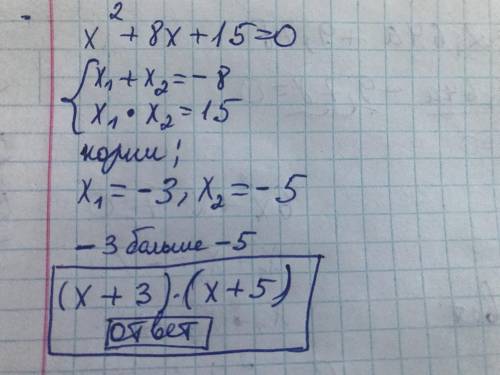 x² + 8x + 15 = 0
{ x₁ + x₂ = -8
x₁ · x₂ = 15
корни:
x₁ = -3, x₂ = -5
-3 больше -5
(x + 3) · (x + 5)
ответ